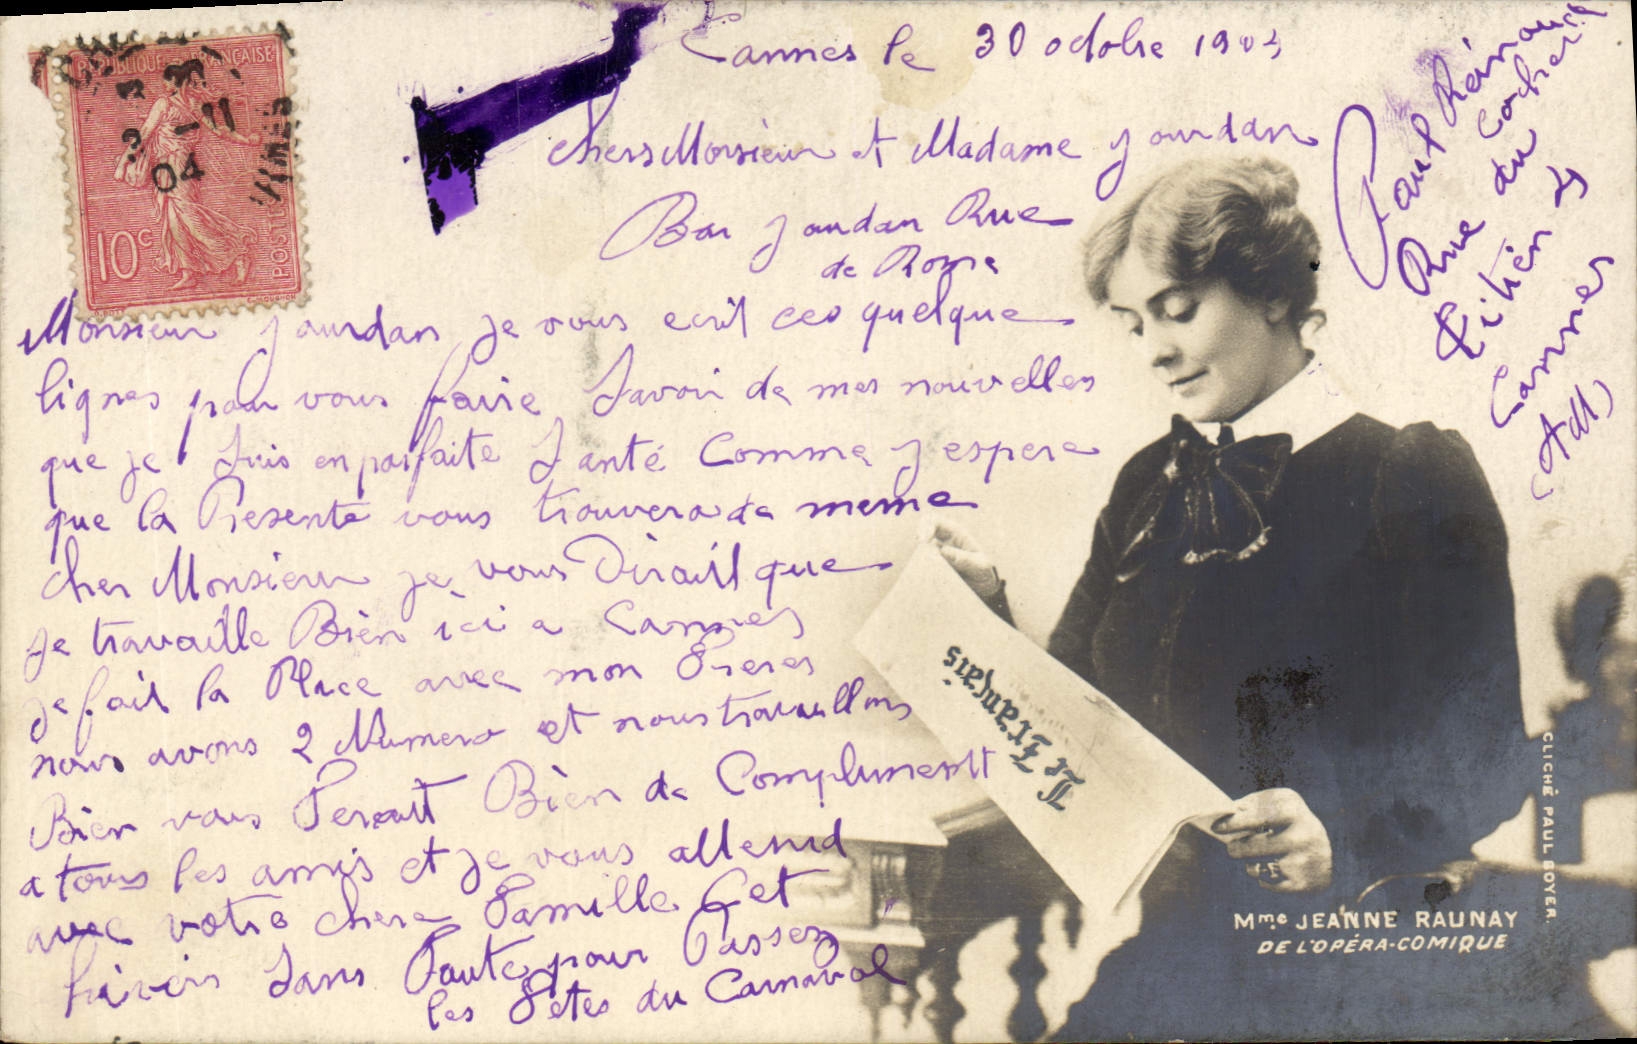 RÉPUBLIQUE FRANÇAISE
POSTES
10c
3 -11
04
Cannes le 30 octobre 1903
chers Monsieur et Madame Jourdan
Bar Jourdan Rue
de Rome
Monsieur Jourdan je vous ecrit ces quelque
lignes pour vous faire Savoir de mes nouvelles
que je Suis en parfaite Santé Comme j espere
que la Presente vous trouvera de meme
cher Monsieur je vous Dirait que
je travaille Bièn ici a Cannes
je fait la Place avec mon Freres
nous avons 2 Numero et nous travaillons
Bièn vous Ferait Bièn de Complimentt
a tous les amis et je vous attend
avec votre chere Famille Cet
hivèr Sans Faute pour Passez
les Fetes du Carnaval
Paul
Rue du
Cannes
(AM)
Le Français
Mme JEANNE RAUNAY
DE L'OPÉRA-COMIQUE
CLICHÉ PAUL BOYER.